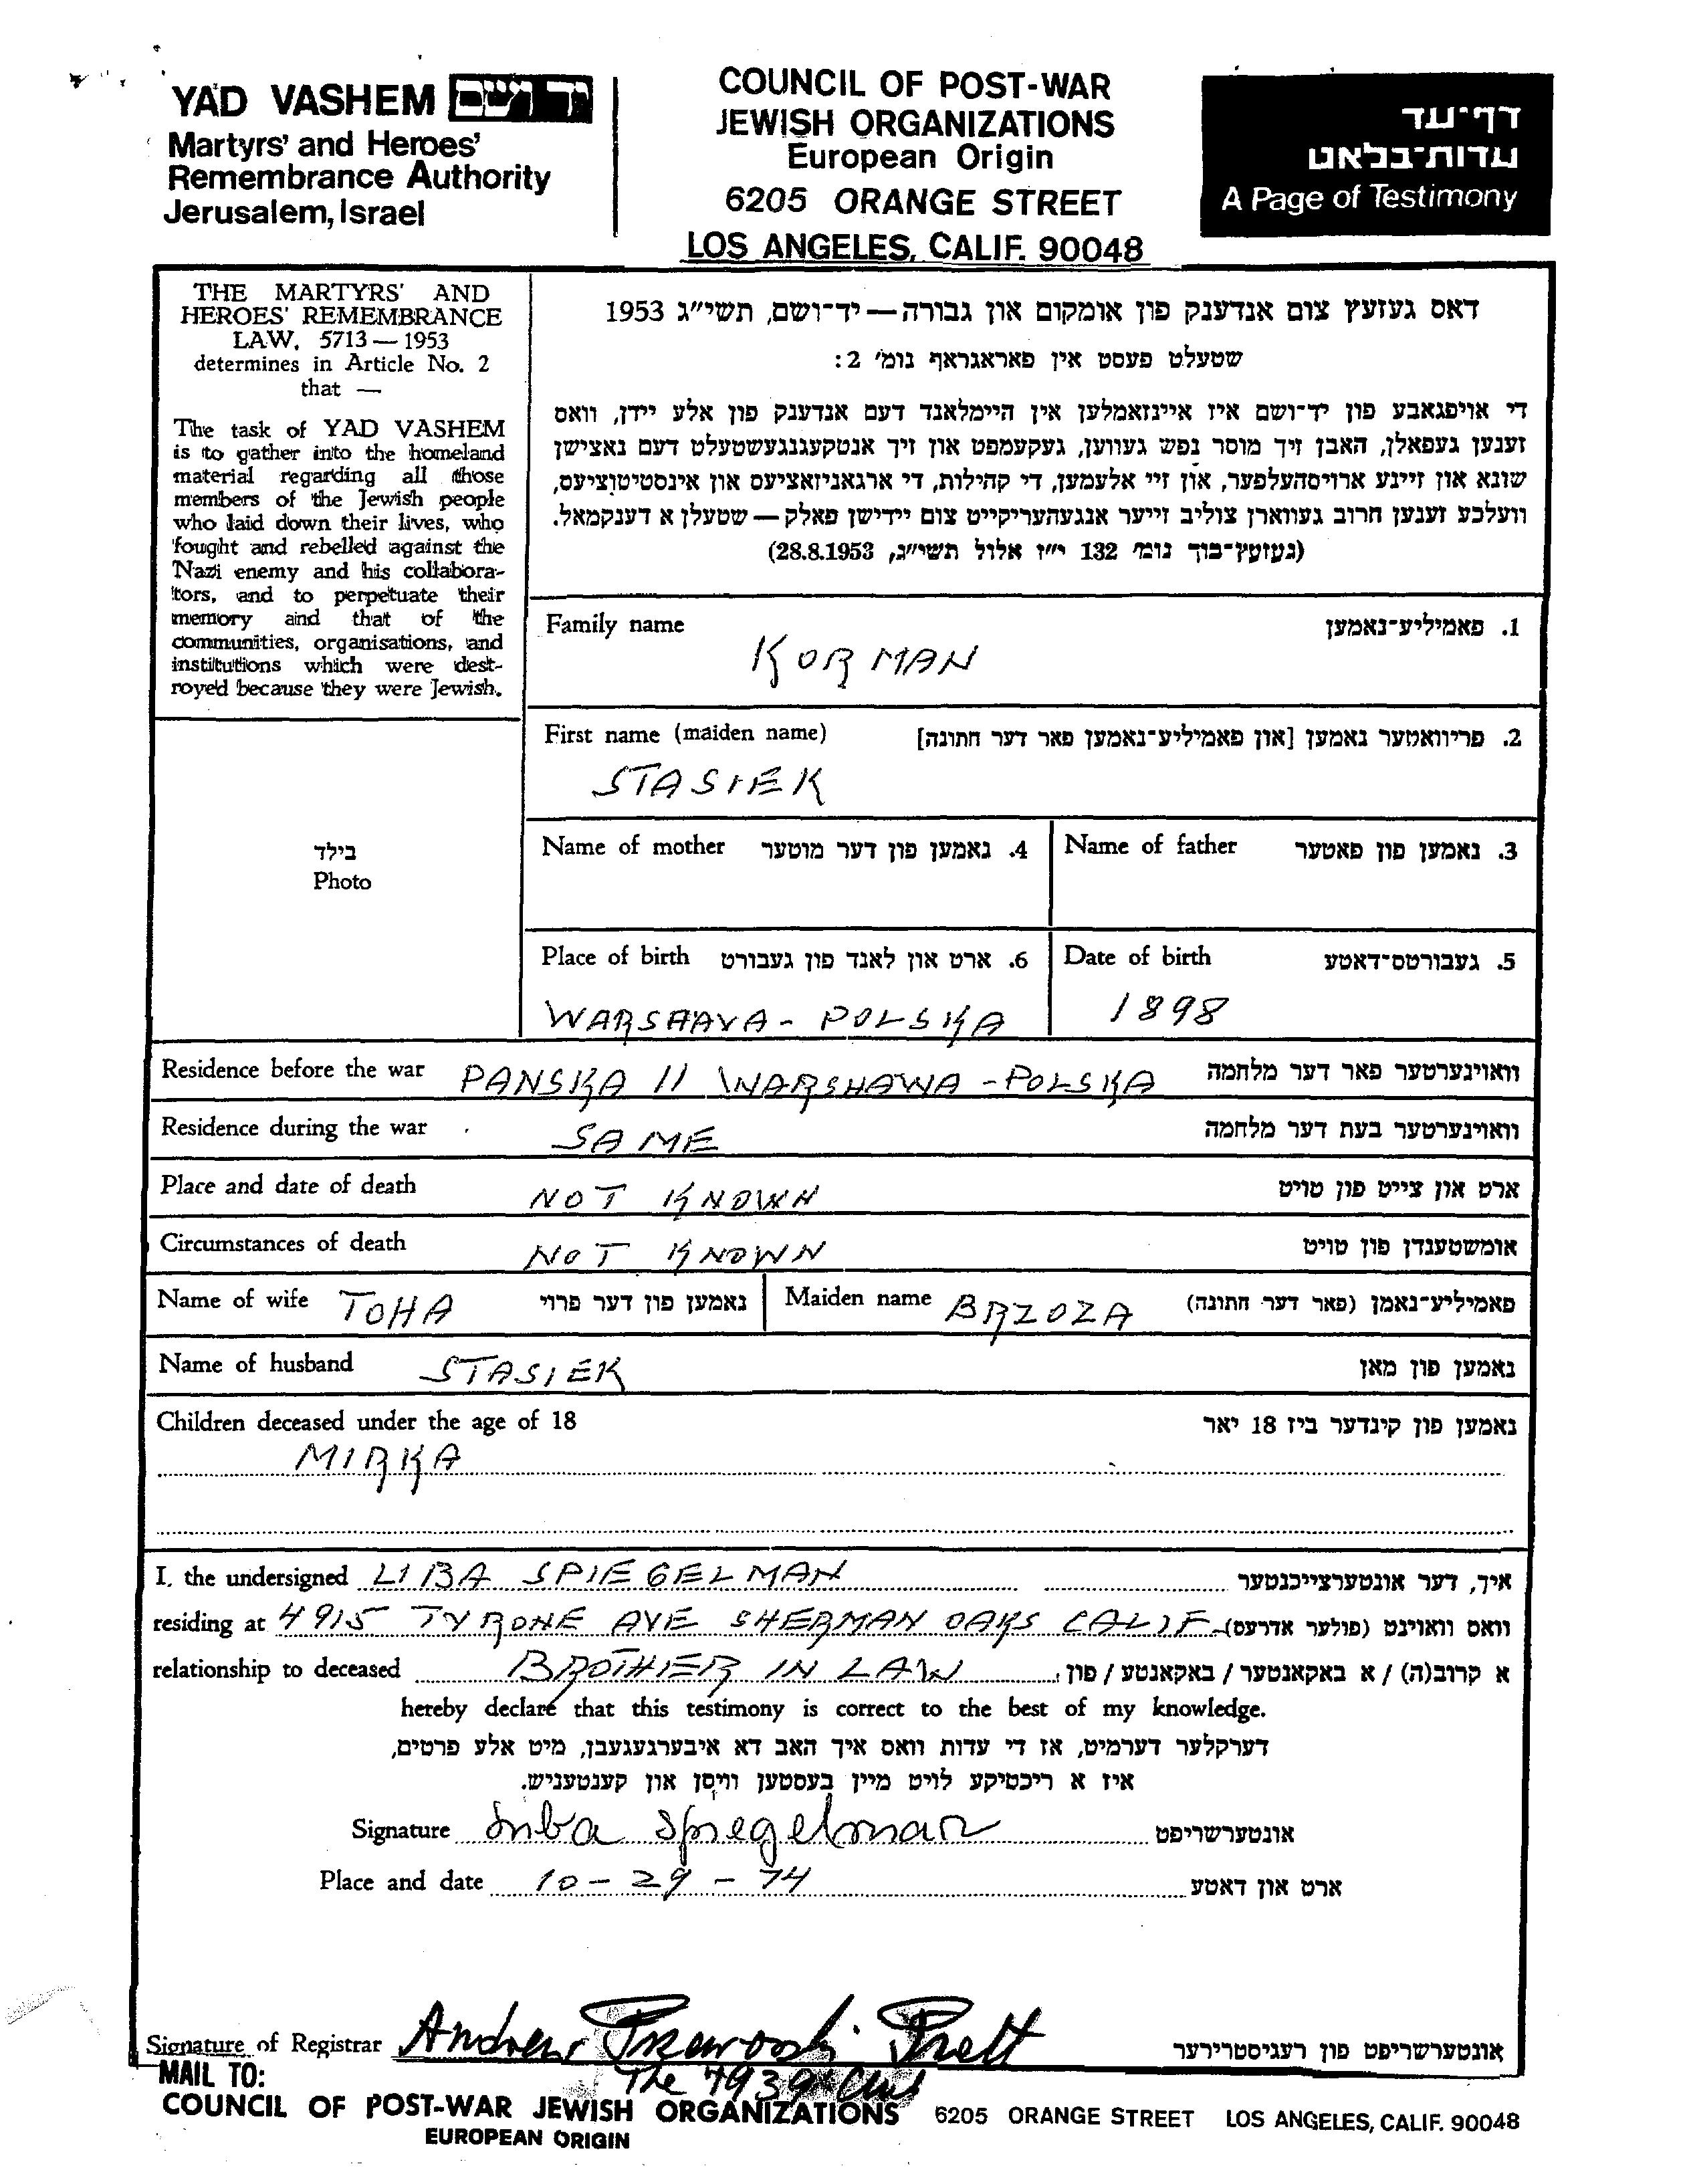 YAD VASHEM יד ושם
Martyrs' and Heroes'
Remembrance Authority
Jerusalem, Israel
COUNCIL OF POST-WAR
JEWISH ORGANIZATIONS
European Origin
6205 ORANGE STREET
LOS ANGELES, CALIF. 90048
דף־עד
עדות־בלאט
A Page of Testimony
THE MARTYRS' AND
HEROES' REMEMBRANCE
LAW, 5713 — 1953
determines in Article No. 2
that —
The task of YAD VASHEM
is to gather into the homeland
material regarding all those
members of the Jewish people
who laid down their lives, who
fought and rebelled against the
Nazi enemy and his collabora-
tors, and to perpetuate their
memory and that of the
communities, organisations, and
institutions which were dest-
royed because they were Jewish.
דאס געזעץ צום אנדענק פון אומקום און גבורה — יד־ושם, תשי״ג 1953
שטעלט פעסט אין פאראגראף נומ׳ 2:
די אויפגאבע פון יד־ושם איז איינזאמלען אין היימלאנד דעם אנדענק פון אלע יידן, וואס
זענען געפאלן, האבן זיך מוסר נפש געווען, געקעמפט און זיך אנטקעגנגעשטעלט דעם נאצישן
שונא און זיינע ארויסהעלפער, און זיי אלעמען, די קהילות, די ארגאניזאציעס און אינסטיטוציעס,
וועלכע זענען חרוב געווארן צוליב זייער אנגעהעריקייט צום יידישן פאלק — שטעלן א דענקמאל.
(געזעץ־בוך נומ׳ 132 י״ז אלול תשי״ג, 28.8.1953)
בילד
Photo
Family name 1. פאמיליע־נאמען
KORMAN
First name (maiden name) 2. פריוואטער נאמען [און פאמיליע־נאמען פאר דער חתונה]
STASIEK
Name of mother 4. נאמען פון דער מוטער
Name of father 3. נאמען פון פאטער
Place of birth 6. ארט און לאנד פון געבורט
WARSHAVA - POLSKA
Date of birth 5. געבורטס־דאטע
1898
Residence before the war PANSKA 11 WARSHAWA - POLSKA וואוינערטער פאר דער מלחמה
Residence during the war SAME וואוינערטער בעת דער מלחמה
Place and date of death NOT KNOWN ארט און צייט פון טויט
Circumstances of death NOT KNOWN אומשטענדן פון טויט
Name of wife TOHA נאמען פון דער פרוי Maiden name BRZOZA פאמיליע־נאמן (פאר דער חתונה)
Name of husband STASIEK נאמען פון מאן
Children deceased under the age of 18 נאמען פון קינדער ביז 18 יאר
MIRKA
I, the undersigned LIBA SPIEGELMAN איך, דער אונטערצייכנטער
residing at 4915 TYRONE AVE SHERMAN OAKS CALIF וואס וואוינט (פולער אדרעס)
relationship to deceased BROTHER IN LAW א קרוב(ה) / א באקאנטער / באקאנטע / פון
hereby declare that this testimony is correct to the best of my knowledge.
דערקלער דערמיט, אז די עדות וואס איך האב דא איבערגעגעבן, מיט אלע פרטים,
איז א ריכטיקע לויט מיין בעסטען וויסן און קענטעניש.
Signature Liba Spiegelman אונטערשריפט
Place and date 10 - 29 - 74 ארט און דאטע
Signature of Registrar Andrew Prett אונטערשריפט פון רעגיסטרירער
The 1939 Club
MAIL TO:
COUNCIL OF POST-WAR JEWISH ORGANIZATIONS 6205 ORANGE STREET LOS ANGELES, CALIF. 90048
EUROPEAN ORIGIN